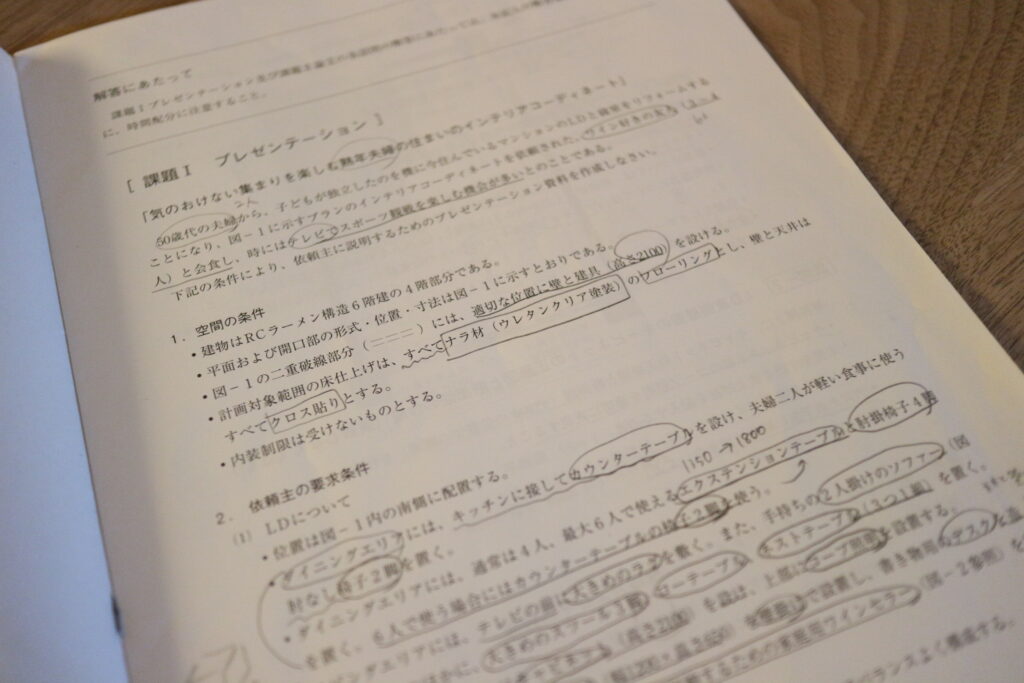 解答にあたって
課題Ⅰプレゼンテーション及び課題Ⅱ論文の
に、時間配分に注意すること。
[ 課題Ⅰ プレゼンテーション ]
「気のおけない集まりを楽しむ熟年夫婦の住まいのインテリアコーディネート」
2人
50歳代の夫婦から、子どもが独立したのを機に今住んでいるマンションのLDと個室をリフォームする
ことになり、図-1に示すプランのインテリアコーディネートを依頼された。ワイン好きの友人(3~4
人)と会食し、時にはテレビでスポーツ観戦を楽しむ機会が多いとのことである。
下記の条件により、依頼主に説明するためのプレゼンテーション資料を作成しなさい。
1. 空間の条件
• 建物はRCラーメン構造6階建の4階部分である。
• 平面および開口部の形式・位置・寸法は図-1に示すとおりである。
• 図-1の二重破線部分(===)には、適切な位置に壁と建具(高さ2100)を設ける。
• 計画対象範囲の床仕上げは、すべてナラ材(ウレタンクリア塗装)のフローリングとし、壁と天井は
すべてクロス貼りとする。
• 内装制限は受けないものとする。
2. 依頼主の要求条件
(1) LDについて
• 位置は図-1内の南側に配置する。
• ダイニングエリアには、キッチンに接してカウンターテーブルを設け、夫婦二人が軽い食事に使う
肘なし椅子2脚を置く。
1150→1800
• ダイニングエリアには、通常は4人、最大6人で使えるエクステンションテーブルと肘掛椅子4脚
を置く。6人で使う場合にはカウンターテーブルの椅子2脚を使う。
ビングエリアには、テレビの前に大きめのラグを敷く。また、手持ちの2人掛けのソファー(図
ほかに、大きめのスツールを3個、コーナーテーブル、ネストテーブル(3つ1組)を置く。
ャビネット(高さ2100)を設け、上部にコーブ照明を設置する。
(幅1200×高さ650)を壁掛けで設置し、書き物用のデスクと
するための家庭用ワインセラー(図-2参照)を
バランスよく構成する。